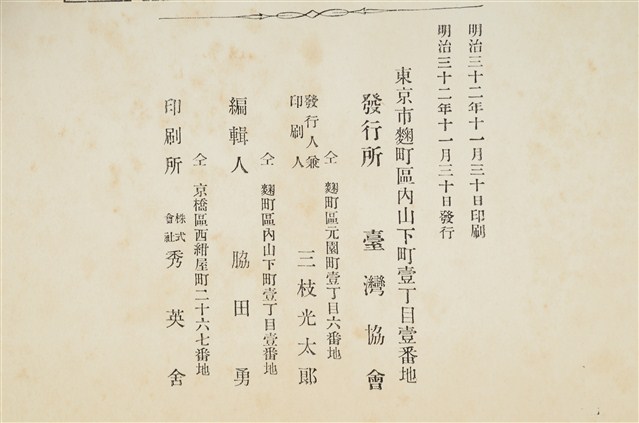 明治三十二年十一月三十日印刷
明治三十二年十一月三十日發行
東京市麴町區內山下町壹丁目壹番地
發行所 臺灣協會
仝 麴町區元園町壹丁目六番地
發行人兼
印刷人 三枝光太郎
仝 麴町區內山下町壹丁目壹番地
編輯人 脇田勇
仝 京橋區西紺屋町二十六七番地
印刷所 株式
會社 秀英舍